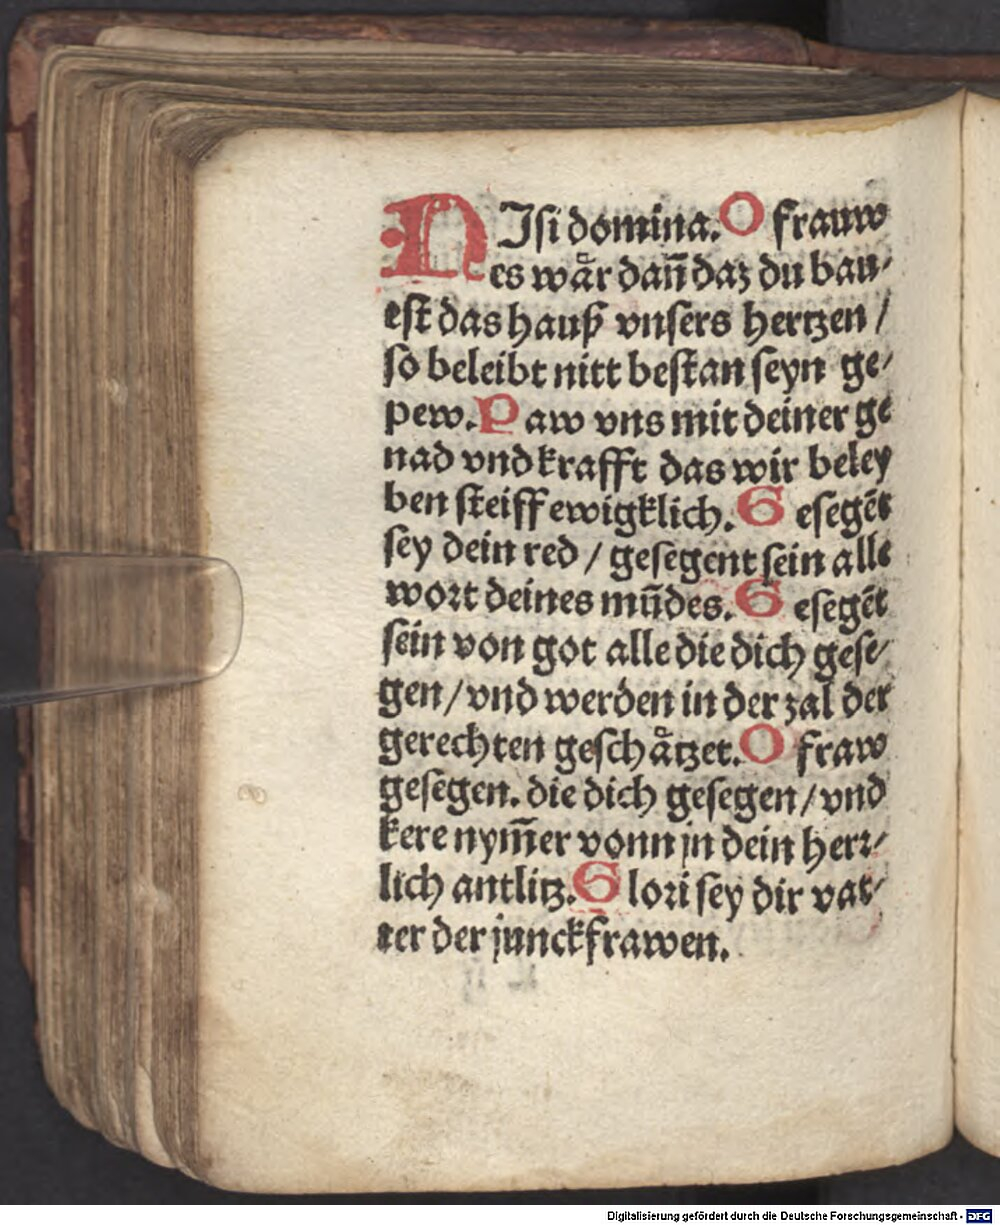 NIſi domina. O frauw
es waͤr dañ daz du bau⸗
eſt das hauß vnſers hertzen /
ſo beleibt nitt beſtan ſeyn ge⸗
pew. Paw vns mit deiner ge
nad vnd krafft das wir beley
ben ſteiff ewigklich. Geſegẽt
ſey dein red / geſegent ſein alle
wort deines mũdes. Geſegẽt
ſein von got alle die dich geſe⸗
gen / vnd werden in der zal der
gerechten geſchaͤtzet. O fraw
geſegen. die dich geſegen / vnd
kere nym̃er vonn jn dein herr⸗
lich antlitz. Glori ſey dir vat⸗
ter der junckfrawen.
Digitalisierung gefördert durch die Deutsche Forschungsgemeinschaft - DFG